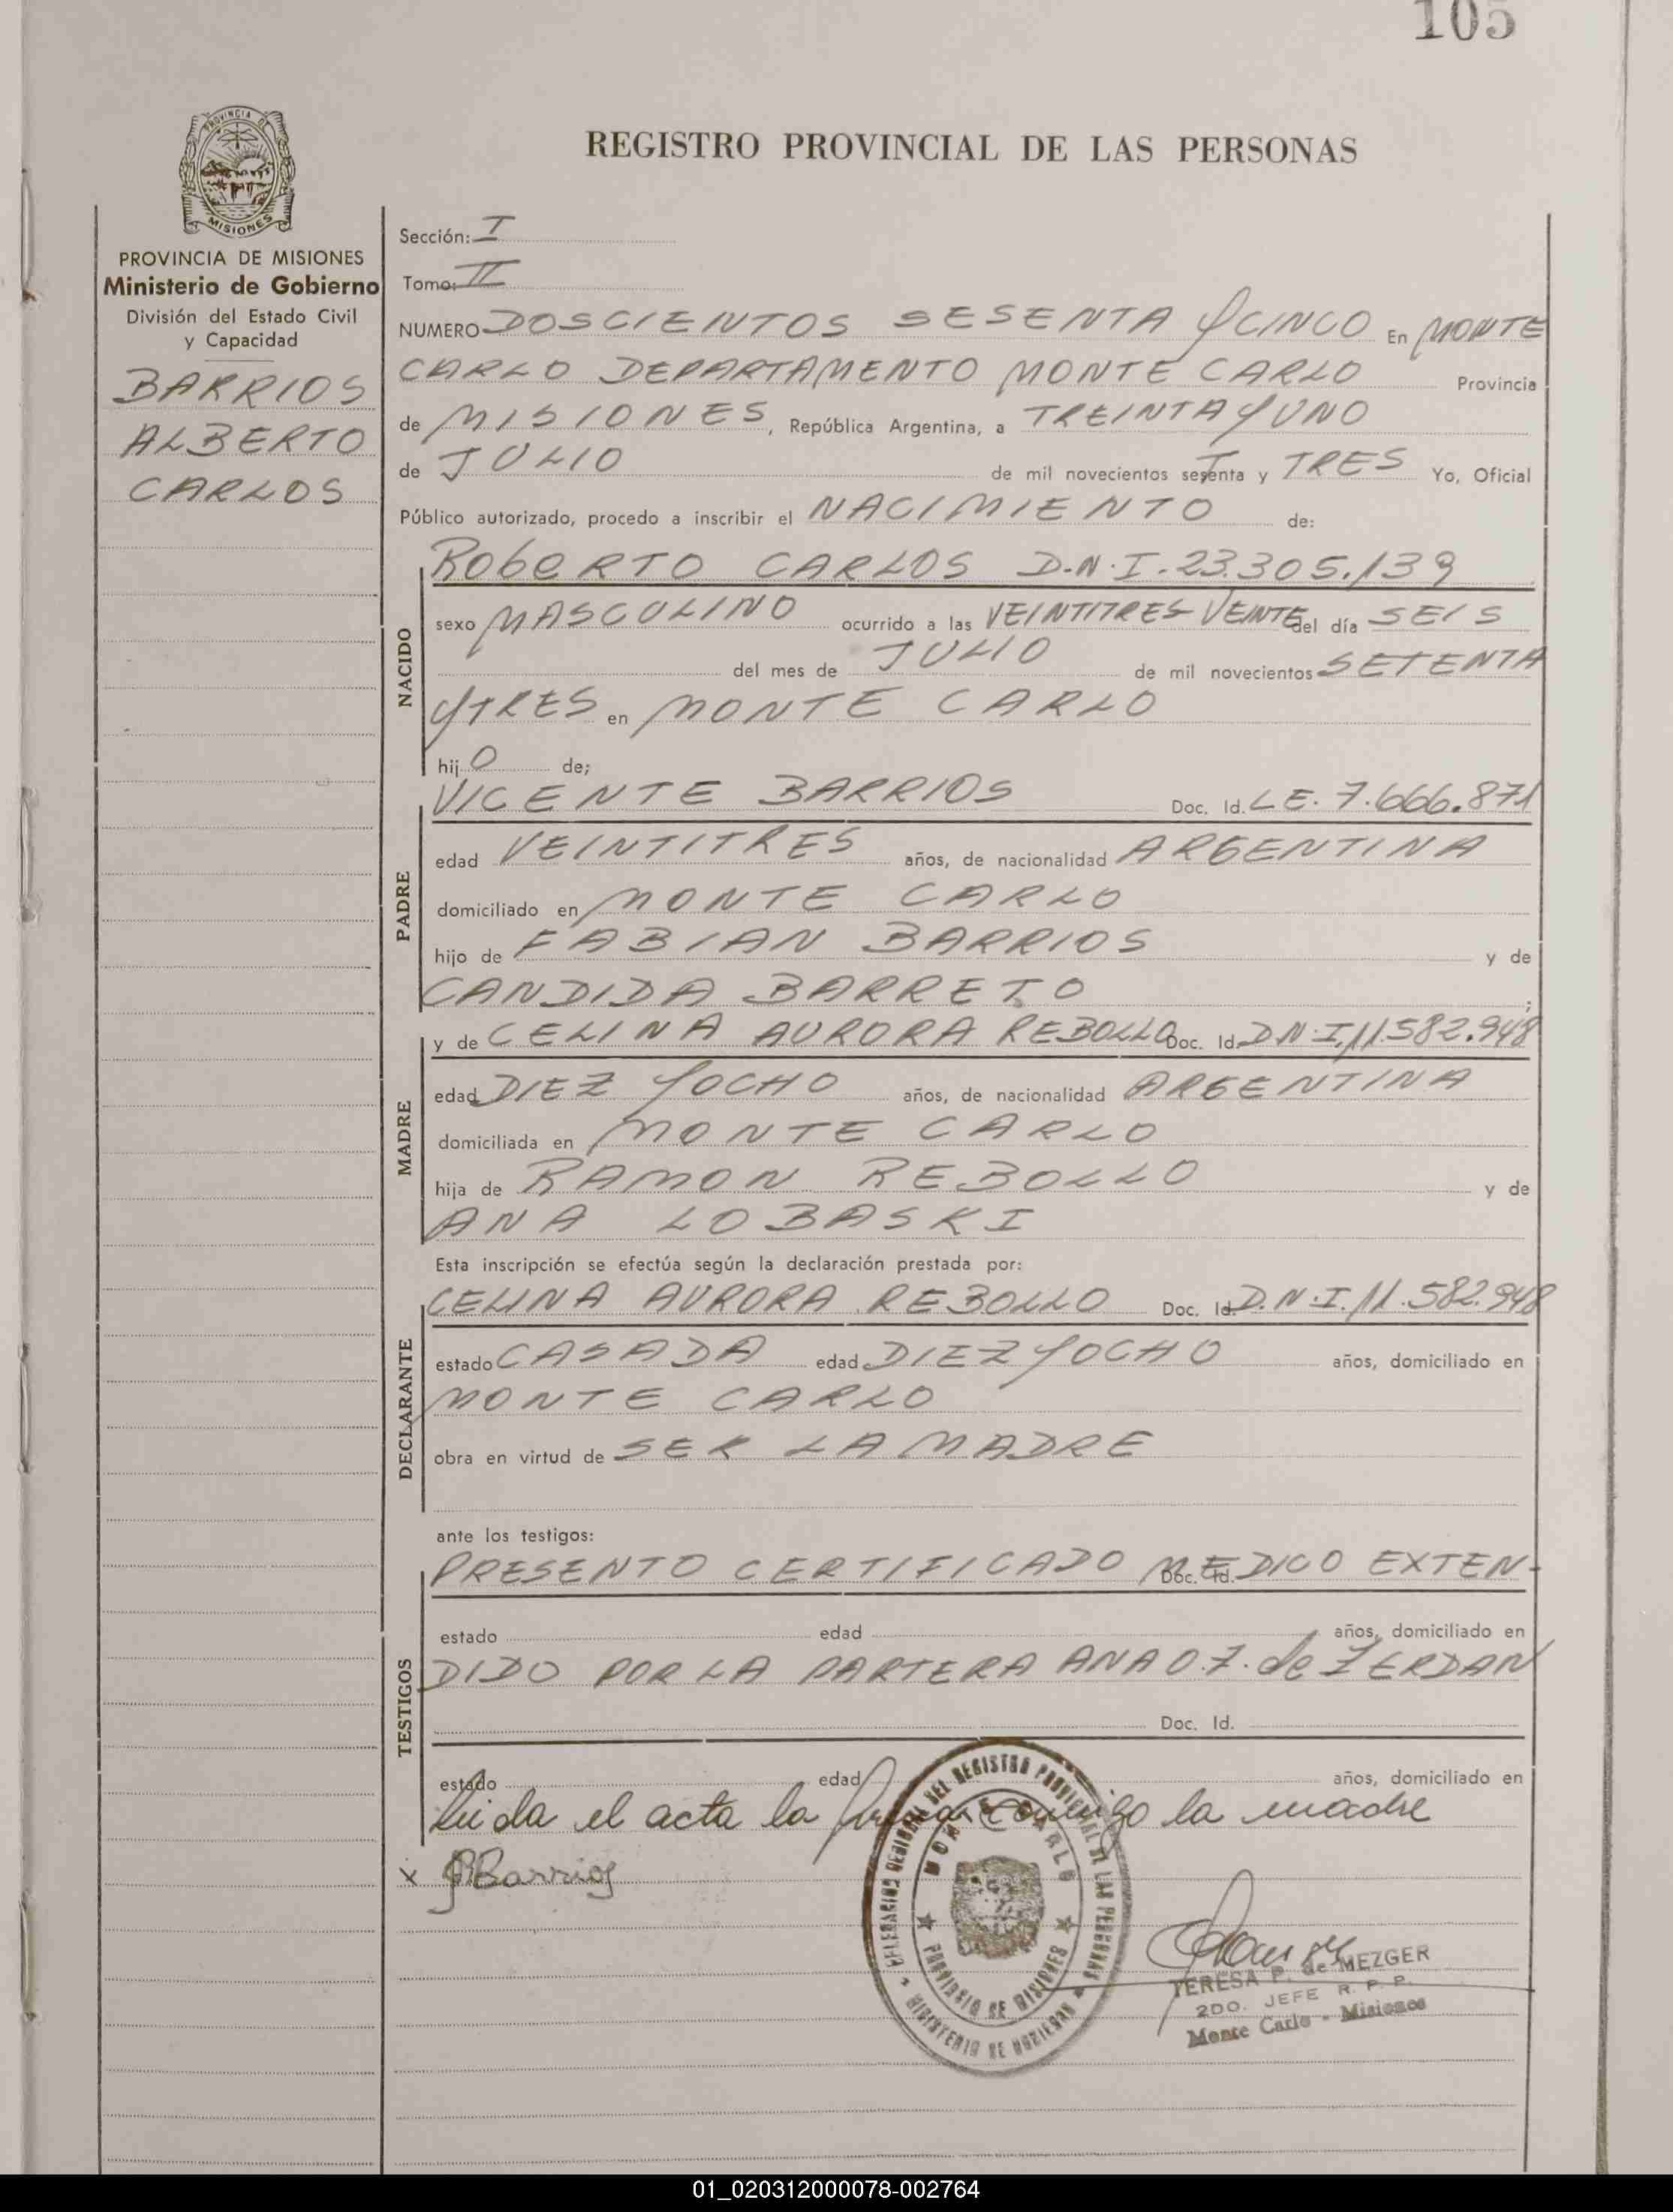 105
PROVINCIA DE
MISIONES
REGISTRO PROVINCIAL DE LAS PERSONAS
PROVINCIA DE MISIONES
Ministerio de Gobierno
División del Estado Civil
y Capacidad
BARRIOS
ALBERTO
CARLOS
Sección: I
Tomo: II
NUMERO DOSCIENTOS SESENTA Y CINCO En MONTE
CARLO DEPARTAMENTO MONTE CARLO Provincia
de MISIONES, República Argentina, a TREINTA Y UNO
de JULIO de mil novecientos setenta y TRES Yo, Oficial
Público autorizado, procedo a inscribir el NACIMIENTO de:
NACIDO
RobeRTO CARLOS D.N.I. 23.305.139
sexo MASCULINO ocurrido a las VEINTITRES VEINTE del día SEIS
del mes de JULIO de mil novecientos SETENTA
Y TRES en MONTE CARLO
hij O de;
PADRE
VICENTE BARRIOS Doc. Id. L.E. 7.666.871
edad VEINTITRES años, de nacionalidad ARGENTINA
domiciliado en MONTE CARLO
hijo de FABIAN BARRIOS y de
CANDIDA BARRETO ;
MADRE
y de CELINA AURORA REBOLLO Doc. Id. D.N.I. 11.582.948
edad DIEZ Y OCHO años, de nacionalidad ARGENTINA
domiciliada en MONTE CARLO
hija de RAMON REBOLLO y de
ANA LOBASKI
Esta inscripción se efectúa según la declaración prestada por:
DECLARANTE
CELINA AURORA REBOLLO Doc. Id. D.N.I. 11.582.948
estado CASADA edad DIEZ Y OCHO años, domiciliado en
MONTE CARLO
obra en virtud de SER LA MADRE
ante los testigos:
TESTIGOS
PRESENTO CERTIFICADO MEDICO EXTEN- Doc. Id.
estado edad años, domiciliado en
DIDO POR LA PARTERA ANA O.Z. de ZERDAN
Doc. Id.
estado edad años, domiciliado en
Leida el acta la firma conmigo la madre
x Barrios
DELEGACION REGIONAL DEL REGISTRO PROVINCIAL DE LAS PERSONAS
MONTE CARLO
PROVINCIA DE MISIONES
MINISTERIO DE GOBIERNO
TERESA P. de MEZGER
2DO. JEFE R. P. P.
Monte Carlo - Misiones
01_020312000078-002764